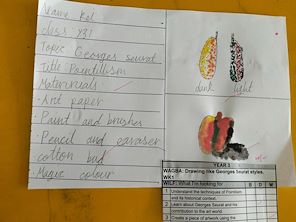 Name Kel
class Y31
Topic Georges seurat
Title Pointillism
Materinals
• Art paper
• Paint and brushes
• Pencil and earaser
cotton bud
Magic colour
dark light
YEAR 3
WAGBA: Drawing like Georges Seurat styles.
WK1
WILF: What I'm looking for B D M
1 Understand the techniques of Pointillism and its historical context.
2 Learn about Georges Seurat and his contribution to the art world
3 Create a piece of artwork using the